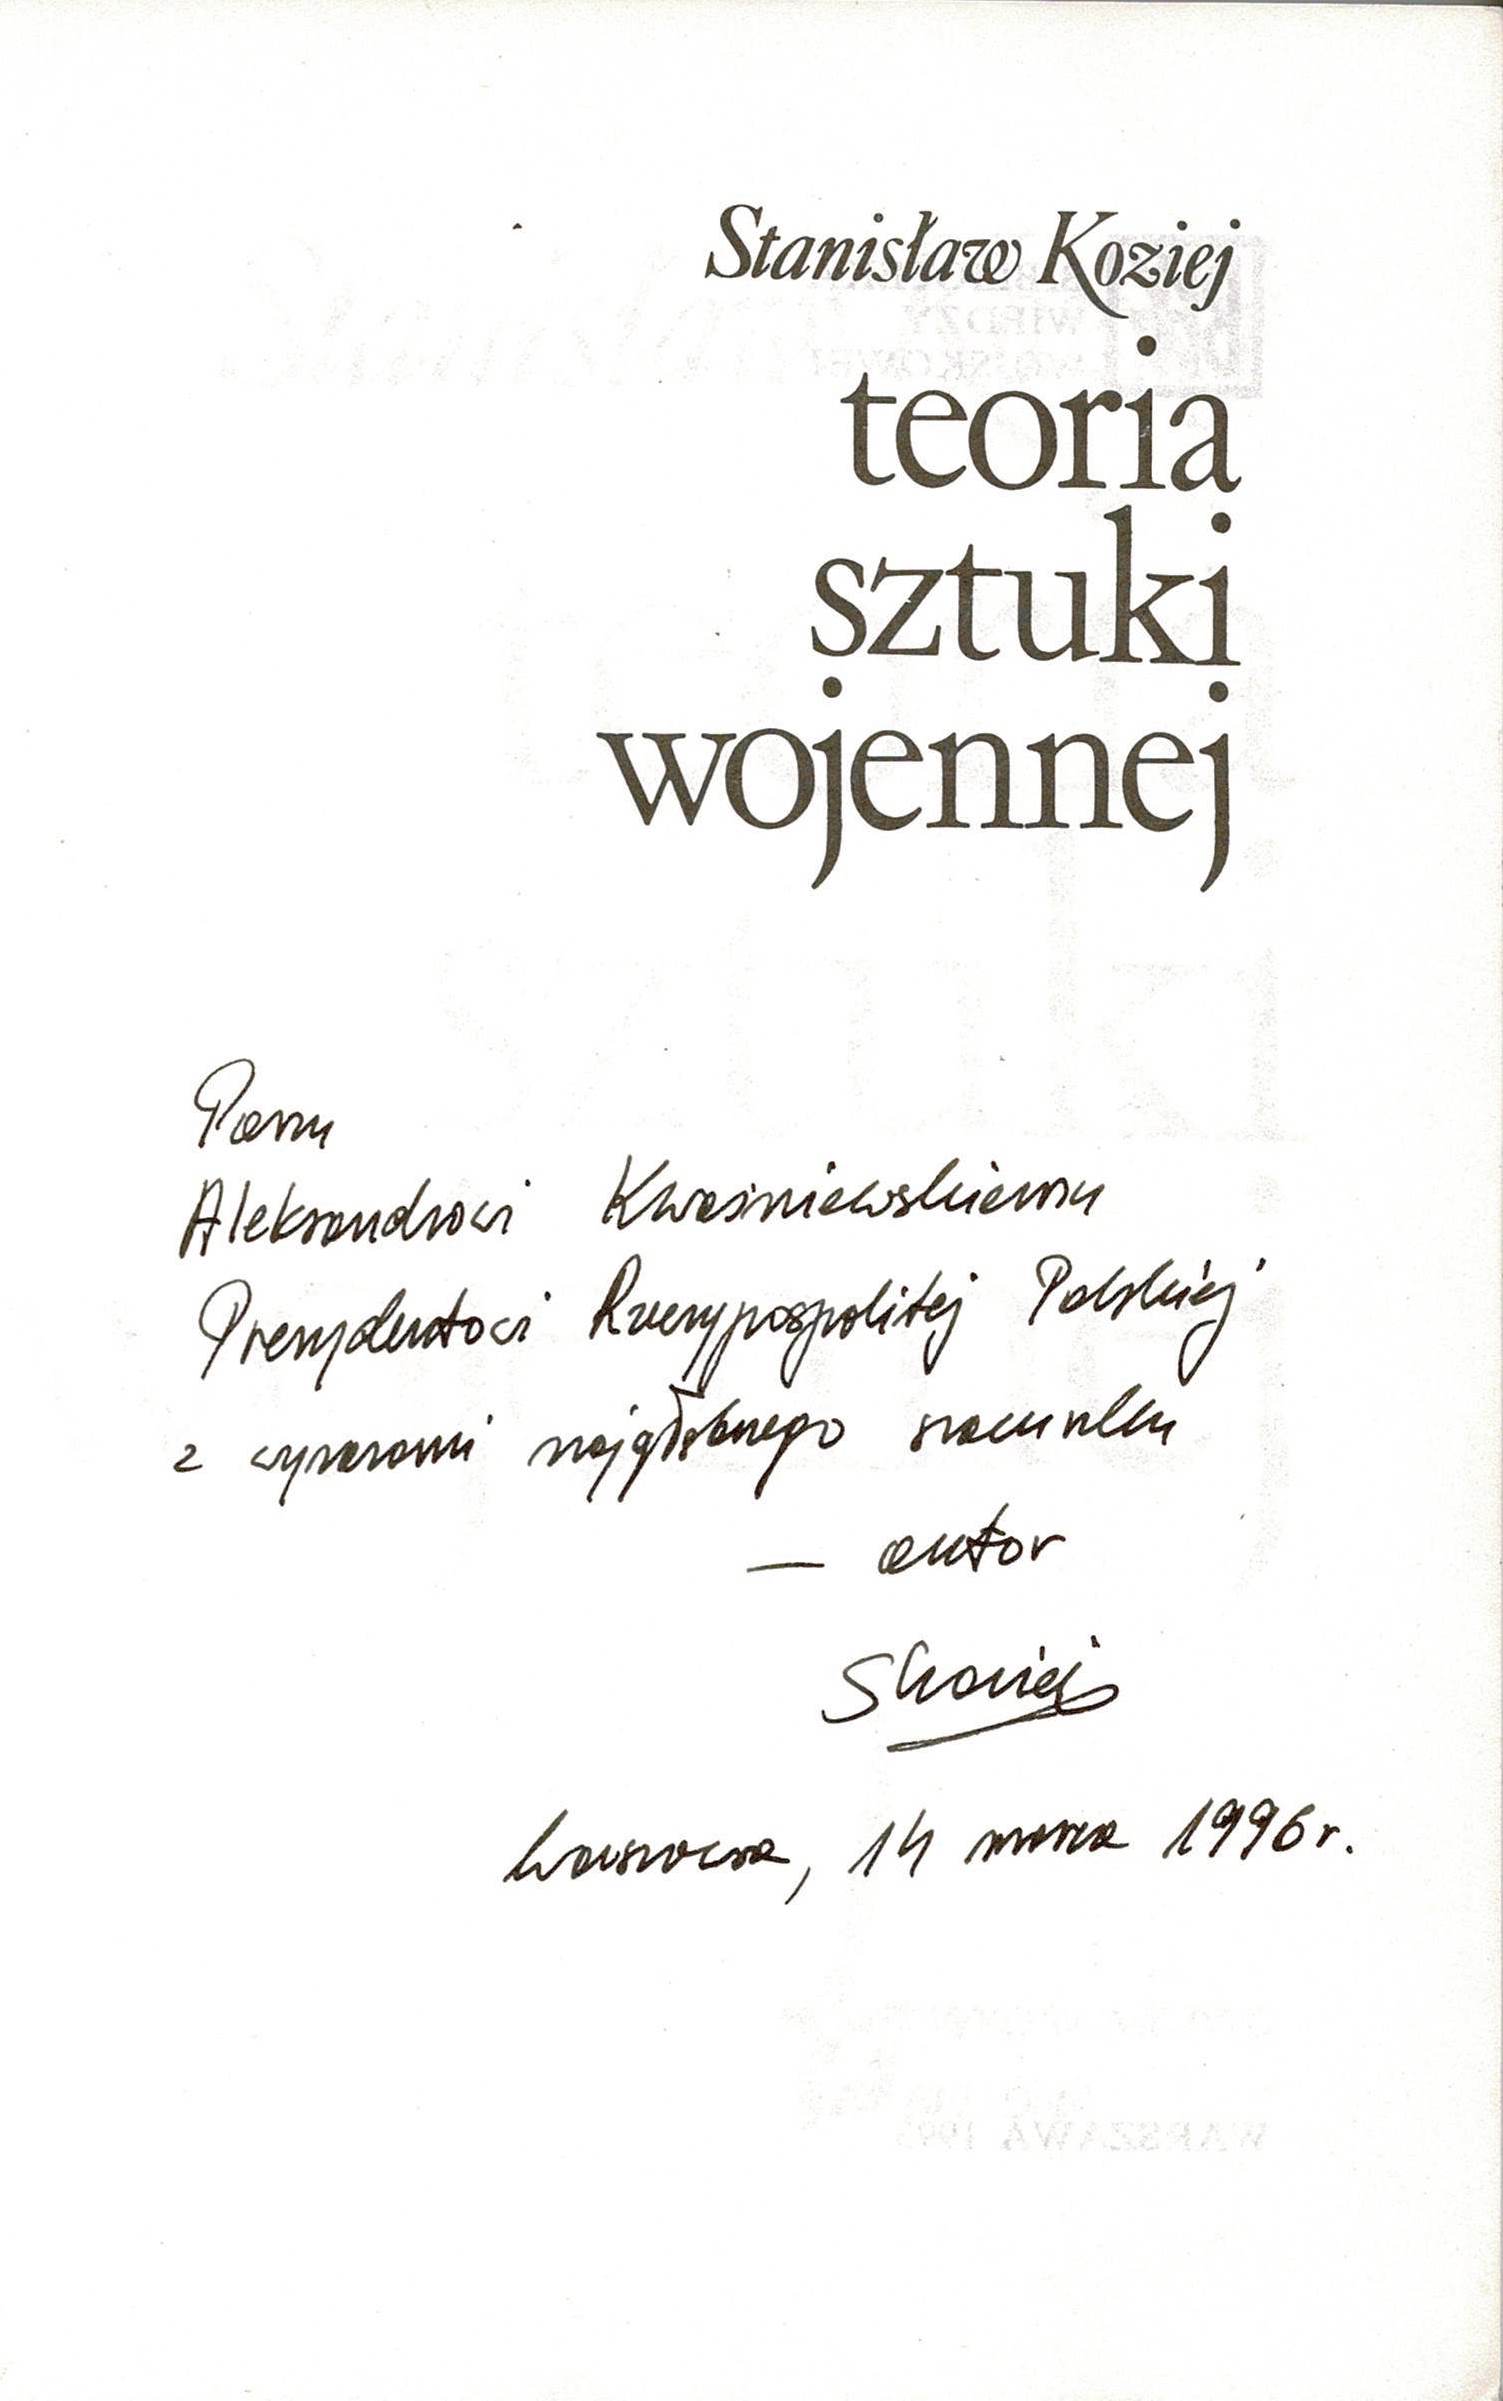 Stanisław Koziej
teoria
sztuki
wojennej
Panu
Aleksandrowi Kwaśniewskiemu
Prezydentowi Rzeczypospolitej Polskiej
z wyrazami najgłębszego szacunku
— autor
SKoziej
Warszawa, 14 marca 1996 r.
WARSZAWA